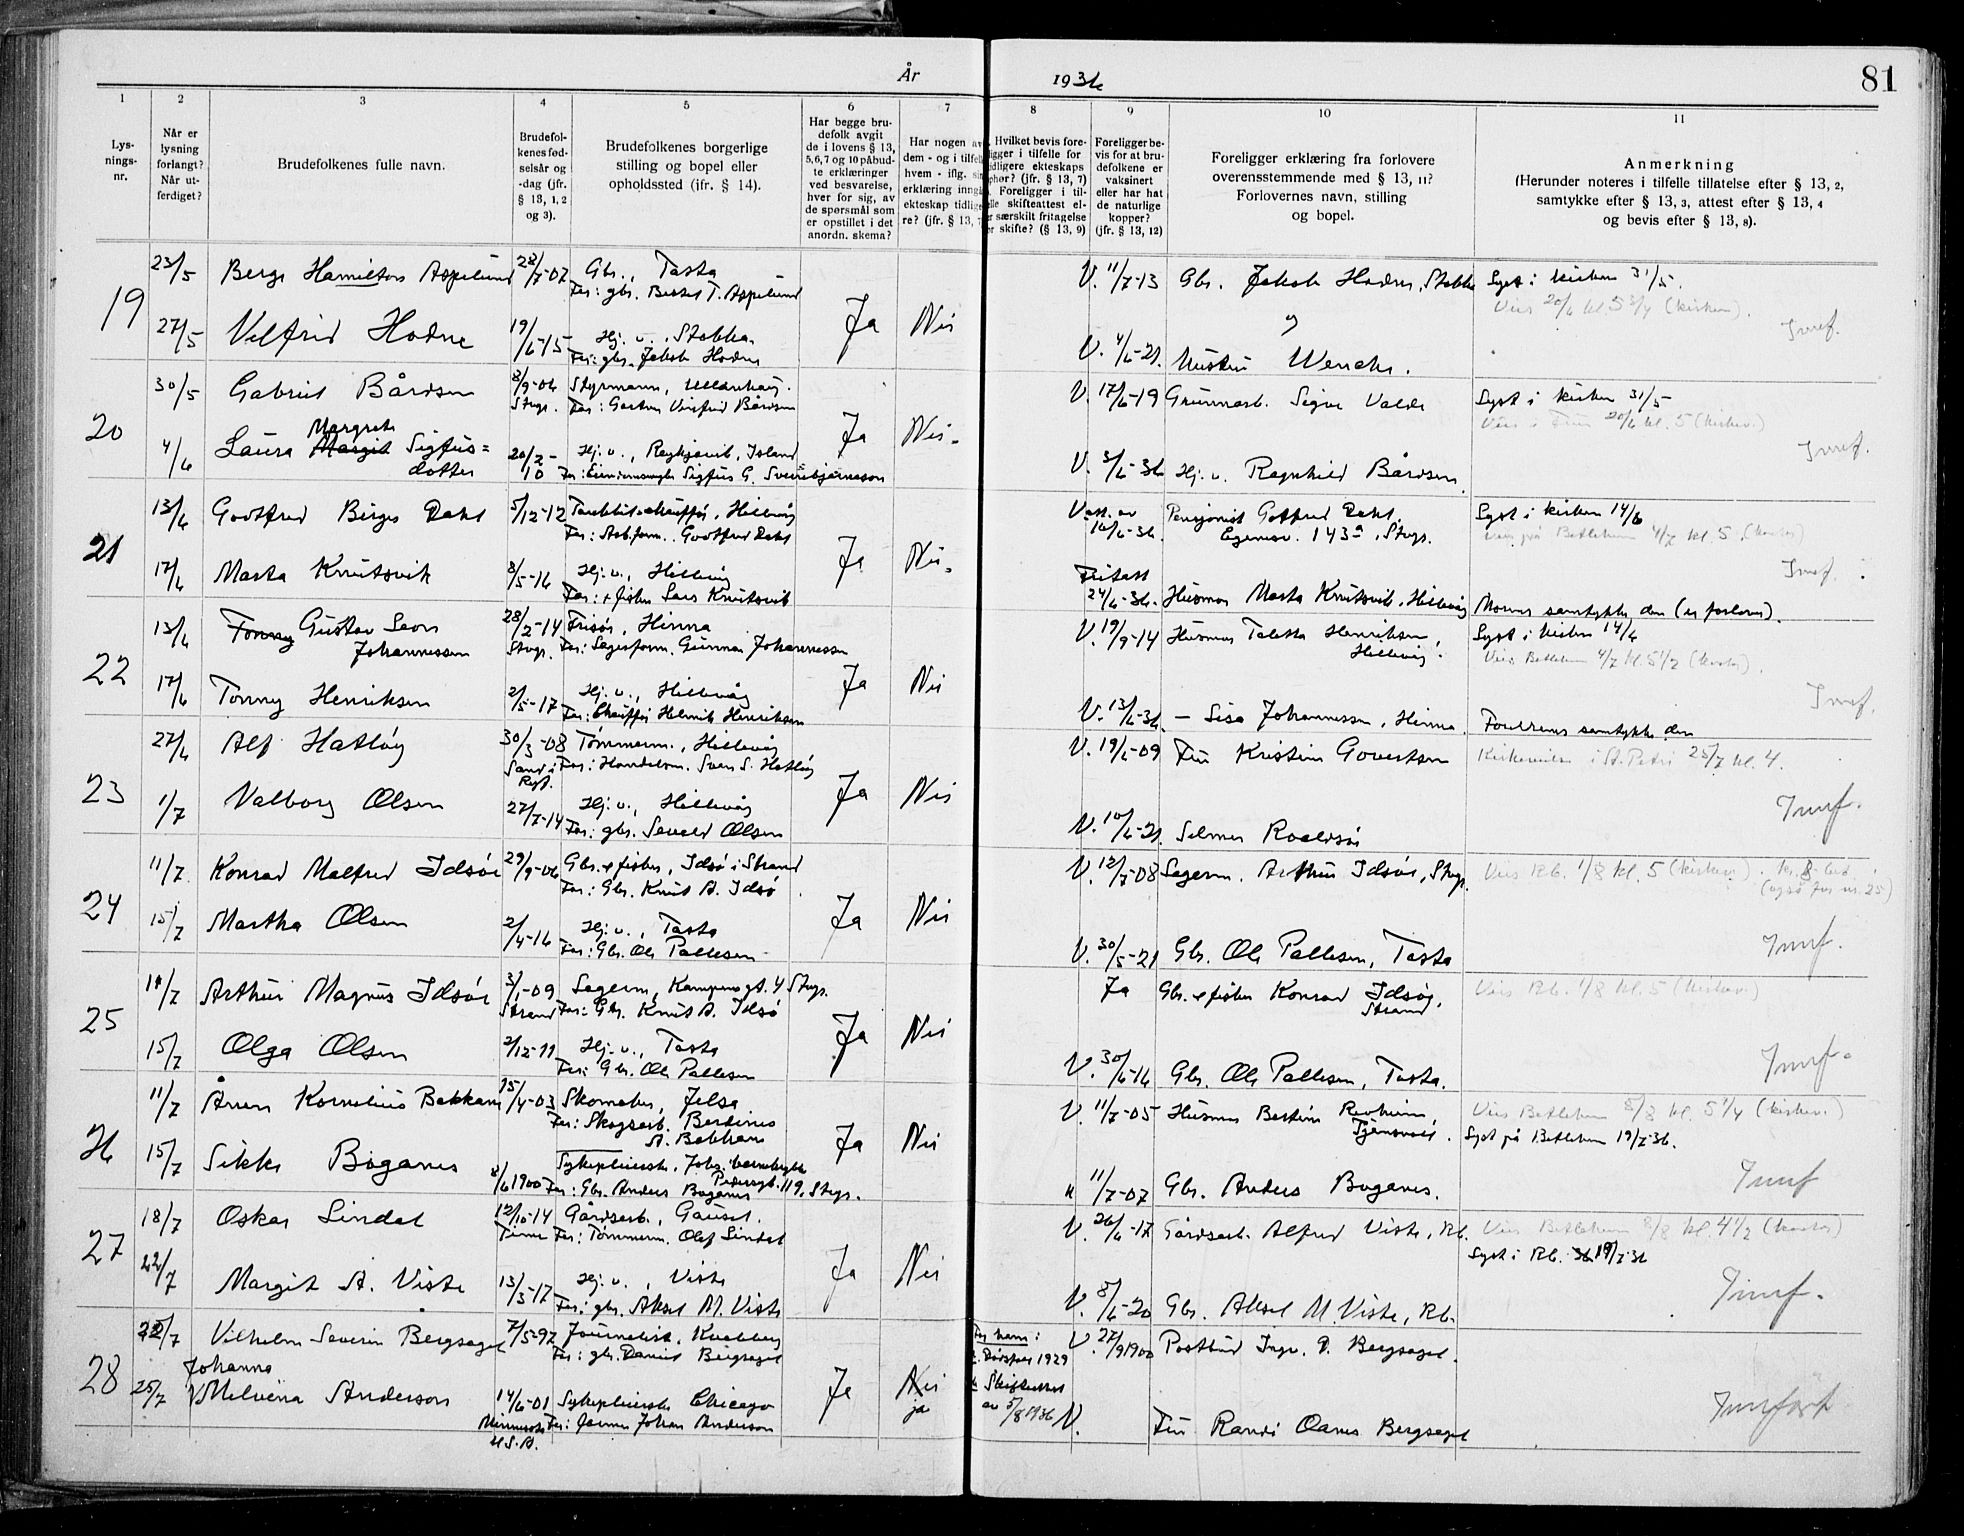 År 1936
81
1 2 3 4 5 6 7 8 9 10 11
Lys-
nings-
nr.
Når er
lysning
forlangt?
Når ut-
ferdiget?
Brudefolkenes fulle navn.
Brudefol-
kenes fød-
selsår og
-dag (jfr.
§ 13, 1, 2
og 3).
Brudefolkenes borgerlige
stilling og bopel eller
opholdssted (jfr. § 14).
Har begge bru-
defolk avgit
de i lovens § 13,
5, 6, 7 og 10 påbud-
te erklæringer
ved besvarelse,
hver for sig, av
de spørsmål som
er opstillet i det
anordn. skema?
Har nogen av
dem - og i tilfelle
hvem - iflg.
erklæring inngått
ekteskap tidlige-
re? (jfr. § 13,
Hvilket bevis fore-
ligger i tilfelle for
tidligere ekteskaps
ophør? (jfr. § 13, 7)
Foreligger i til-
felle skifteattest el-
er særskilt fritagelse
er skifte? (§ 13, 9)
Foreligger be-
vis for at bru-
defolkene er
vaksinert
eller har hat
de naturlige
kopper?
(jfr. § 13, 12)
Foreligger erklæring fra forlovere
overensstemmende med § 13, 11?
Forlovernes navn, stilling
og bopel.
Anmerkning
(Herunder noteres i tilfelle tillatelse efter § 13, 2,
samtykke efter § 13, 3, attest efter § 13, 4
og bevis efter § 13, 8).
19 23/5 Berge Hamilton Aspelund 28/7-07 Gbr., Tasta V. 11/7-13 Gbr. Jakob Hodne, Stokka Lyst i kirken 31/5.
Far: gbr. Bertel T. Aspelund Vies 20/6 kl. 5 3/4 (kirken).
Ja Nei Innf.
27/5 Vilfrid Hodne 19/6-15 Hj. v., Stokka V. 4/6-21. Hustru Wenche.
Far: gbr. Jakob Hodne
20 30/5 Gabriel Bårdsen 8/9-06 Styrmann, V. 17/6-19 Grunnarb. Sigve Valde Lyst i kirken 31/5
Stvgr. Far: Gartner Vinfred Bårdsen 20/6 kl. 5 (kirkev.)
Margrete Ja Nei. Innf.
4/6 Laura Margit Sigfus= 20/2- Hj. v., Reykjavik, Island V. 3/6-36 Hj. v. Ragnhild Bårdsen.
dotter 10 Far: Sigfus G. Sveinbjørnsson
21 13/6 Godtfred Birger Dahl 5/12-12 , Hillevåg V. att. av Pensjonist Gotfred Dahl, Lyst i kirken 14/6
Far: Godtfred Dahl 16/6-36. Egenesv. 143 a, Stvgr. Vies på Betlehem 4/7 kl. 5.
Ja Nei. Innf.
17/6 Marta Knutsvik 8/5-16 Hj. v., Hillevåg Fritatt
Far: + fisker Lars Knutsvik 24/6-36. Husmor Marta Knutsvik, Hillevåg Morens samtykke den (se forlover).
22 13/6 Tonny Gustav Leon 28/2-14 Frisør, Hinna V. 19/9-14 Husmor Taletta Henriksen, Lyst i kirken 14/6
Johannessen Stvgr. Far: Sagesform. Gunnar Johannessen Hillevåg. Vies Betlehem 4/7 kl. 5 1/2
Ja Nei Innf.
17/6 Tonny Henriksen 2/5-17 Hj. v., Hillevåg V. 13/6-36. — Lisa Johannessen, Hinna. Foreldrenes samtykke den
Far: Chauffør Helmik Henriksen
23 27/6 Alf Hatløy 30/3-08 Tømmerm., Hillevåg V. 19/6-09 Fru Kristine Govertsen Kirkevielse i St. Petri 25/7 kl. 4.
Sand i Far: Handelsm. Sven S. Hatløy
Ryf. Ja Nei Innf.
1/7 Valborg Olsen 27/7-14 Hj. v., Hillevåg V. 10/6-21. Selmer Roaldsøi
Far: gbr. Sevald Olsen
24 11/7 Konrad Malfred Idsøe 29/9-06 Gbr. & fisker, Idsø i Strand V. 12/7-08 Sagerm. Arthur Idsøe, Stvgr. Vies Rb. 1/8 kl. 5 (kirkev.)
Far: Gbr. Knut A. Idsø (også for nr. 25)
Ja Nei Innf.
15/7 Martha Olsen 2/4-16 Hj. v., Tasta V. 30/5-21 Gbr. Ole Pallesen, Tasta
Far: Gbr. Ole Pallesen
25 11/7 Arthur Magnus Idsøe 3/1-09 Sagerm, Kampensgt. 4 Stvgr. Ja Gbr. & fisker Konrad Idsøe, Vies Rb. 1/8 kl. 5 (kirkev.)
Strand Far: Gbr. Knut A. Idsø Strand
Ja Nei Innf.
15/7 Olga Olsen 2/12-11 Hj. v., Tasta V. 30/6-16 Gbr. Ole Pallesen, Tasta.
Far: Gbr. Ole Pallesen
26 11/7 Kornelius Bakkane 15/4-03 Skomaker, Jelsa V. 11/7-05 Husmor Bertine Vies Betlehem 8/8 kl. 5 1/4 (kirkev.)
Far: Skogsarb. Berdines Tjensvoll. Lyst på Betlehem 19/7-36.
A. Bakkane
Ja Nei Innf
15/7 Sikke Boganes Sykepleierske,
8/6 1900 Far: Gbr. Anders Boganes Pedersgt. 119, Stvgr. 11/7-07 Gbr. Anders Boganes.
27 18/7 Oskar Lindal 12/10-14 Gårdsarb., Gausel. V. 26/6-17 Gårdsarb. Alfred Viste, Rb. Vies Betlehem 8/8 kl. 4 1/2
Time Far: Tømmerm. Olaf Lindal Lyst i Rb. 19/7-36
Ja Nei Innf.
22/7 Margit A. Viste 13/3-17 Hj. v., Viste V. 5/6-20 Gbr. Aksel M Viste, Rb.
Far: gbr. Aksel M. Viste
28 22/7 Vilhelm Severin Bergsagel 7/5-92 Journalist, Kvaleberg For ham: V. 27/9 1900 Postbud Ingv. D. Bergsagel.
Far: gbr. Daniel Bergsagel Dødsfall 1929
Johanna Ja Nei Skifteattest Innført
25/7 Melvina Anderson 14/6-01 Sykepleierske Chicago ja av 5/8 1936 V. Fru Randi Oanes Bergsagel
Minnesota Far: Johan Anderson
U.S.A.